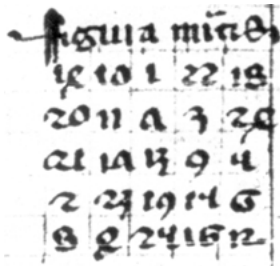 figura
14 10 1 22 18
20 11 7 3 24
21 17 13 9 5
2 23 19 15 6
8 4 25 16 12